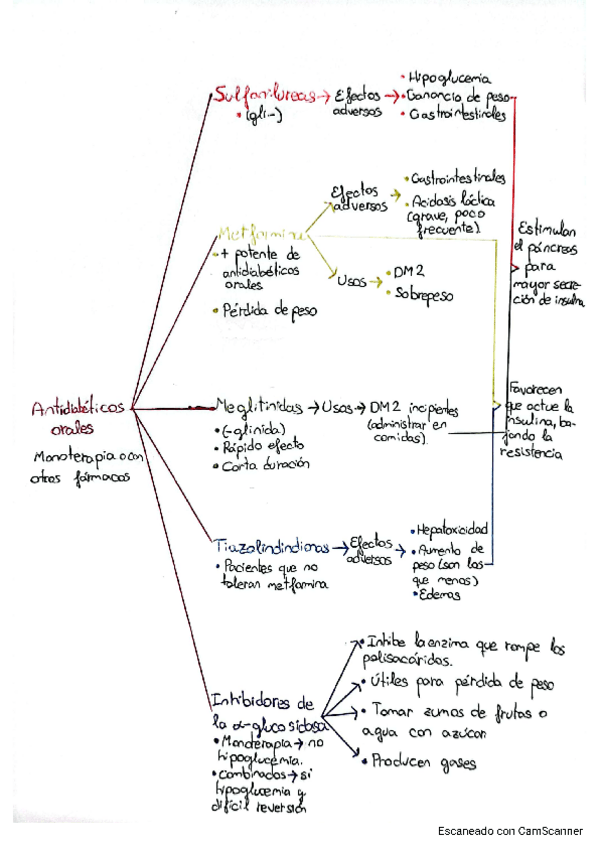 Sulfonilureas → Efectos adversos
• (gli-)
• Hipoglucemia
• Ganancia de peso
• Gastrointestinales
Metformina
• + potente de
antidiabéticos
orales
• Pérdida de peso
Efectos
adversos
• Gastrointestinales
• Acidosis láctica
(grave, poco
frecuente).
Usos
• DM2
• Sobrepeso
Estimulan
el páncreas
para
mayor secre-
ción de insulina
Antidiabéticos
orales
Monoterapia o con
otros fármacos
Meglitinidas → Usos → DM2 incipientes
(administrar en
comidas)
• (-glinida)
• Rápido efecto
• Corta duración
Favorecen
que actue la
insulina, ba-
jando la
resistencia
Tiazolindindionas → Efectos
adversos
• Pacientes que no
toleran metfamina
• Hepatoxicidad
• Aumento de
peso (son las
que menos)
• Edemas
Inhibidores de
la α-glucosidasa
• Monoterapia → no
hipoglucemia.
• Combinados → si
hipoglucemia y
difícil reversión
• Inhibe la enzima que rompe los
polisacáridos.
• Útiles para pérdida de peso
• Tomar zumos de frutas o
agua con azúcar
• Producen gases
Escaneado con CamScanner